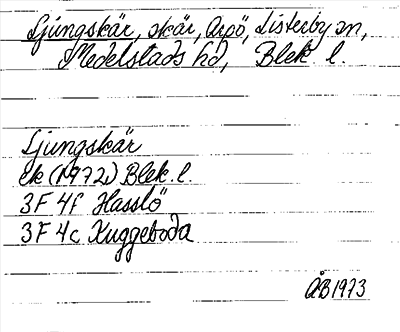 Ljungskär, skär, Arpö, Listerby sn,
Medelstads hd, Blek. l.
Ljungskär
Ek (1972) Blek. l.
3F 4f Hasslö
3F 4c Kuggeboda
ÅB 1973